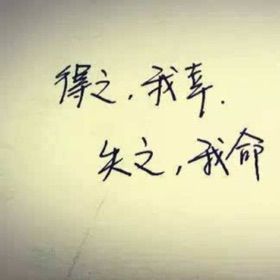 得之，我幸.
失之，我命